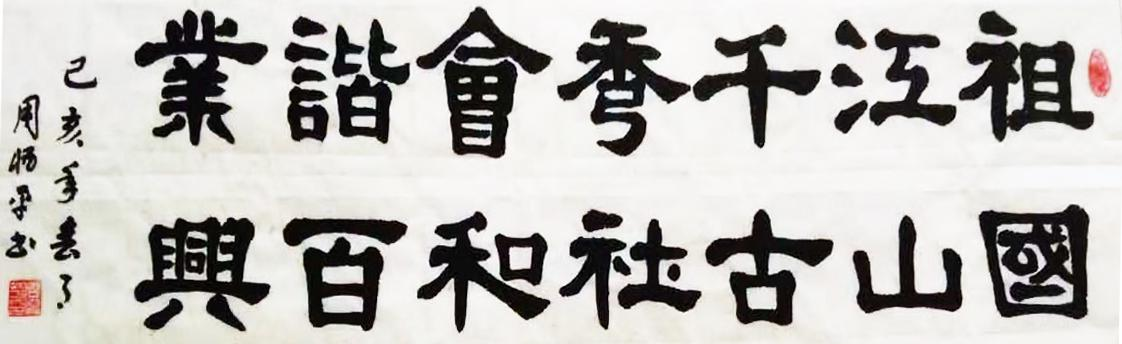 祖國
江山
千古
秀社
會和
諧百
業興
己亥年春月
周平书